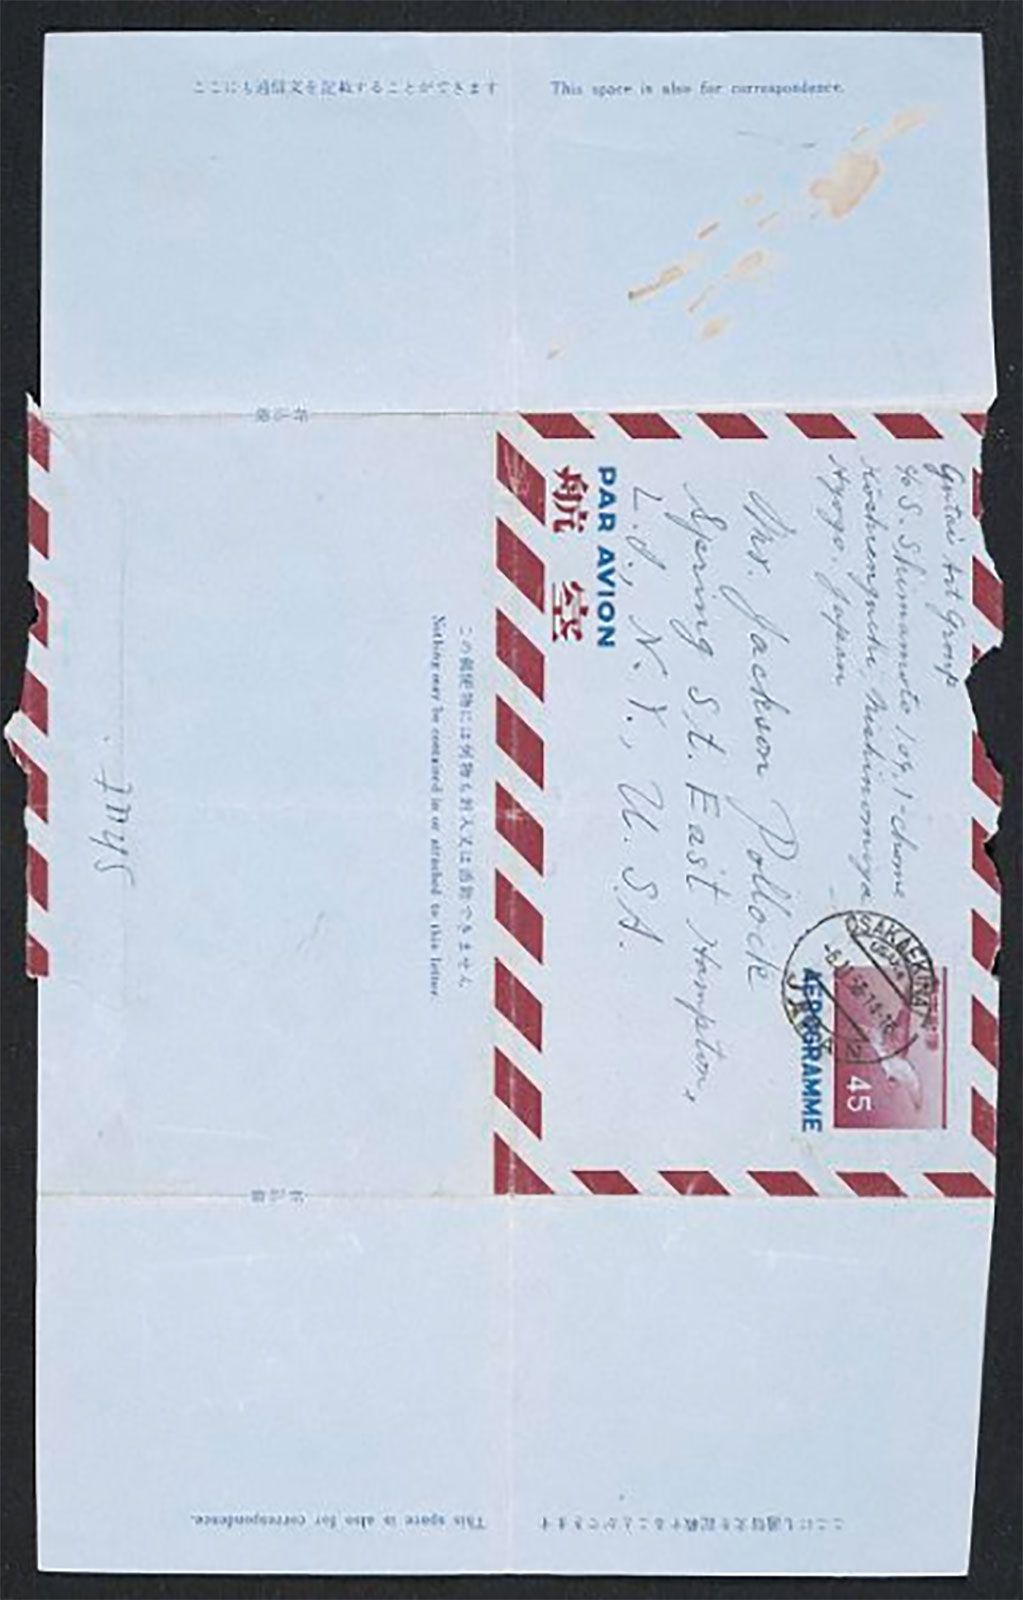 ここにも通信文を記載することができます
This space is also for correspondence.
Gutai Art Group
c/o S. Shimamoto 109, 1-chome
Kōshienguchi, Nishinomiya
Hyogo, Japan
AEROGRAMME
45
OSAKAEKIMAE
JAPAN
Mr. Jackson Pollock
Spring St. East Hampton,
L.I., N.Y., U.S.A.
PAR AVION
航空
この郵便物には何物も封入又は添附できません
Nothing may be contained in or attached to this letter.
ここにも通信文を記載することができます
This space is also for correspondence.